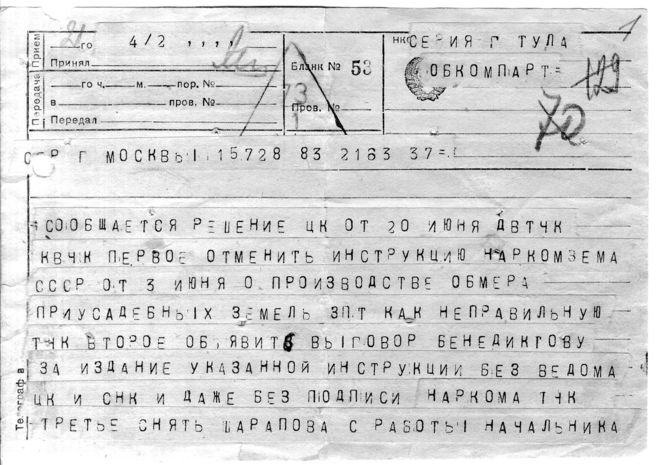 1
Прием
21го
4/2 ,,,,
Принял
Передача
го ч. м. пор. №
в пров. №
Передал
Бланк № 53
73
Пров. №
НК
СЕРИЯ Г ТУЛА
ОБКОМПАРТ=
129
70
СЕР Г МОСКВЫ 15728 83 2163 37=
СООБЩАЕТСЯ РЕШЕНИЕ ЦК ОТ 20 ИЮНЯ ДВТЧК
КВЧК ПЕРВОЕ ОТМЕНИТЬ ИНСТРУКЦИЮ НАРКОМЗЕМА
СССР ОТ 3 ИЮНЯ О ПРОИЗВОДСТВЕ ОБМЕРА
ПРИУСАДЕБНЫХ ЗЕМЕЛЬ ЗПТ КАК НЕПРАВИЛЬНУЮ
ТЧК ВТОРОЕ ОБ,ЯВИТЬ ВЫГОВОР БЕНЕДИКТОВУ
ЗА ИЗДАНИЕ УКАЗАННОЙ ИНСТРУКЦИИ БЕЗ ВЕДОМА
ЦК И СНК И ДАЖЕ БЕЗ ПОДПИСИ НАРКОМА ТЧК
ТРЕТЬЕ СНЯТЬ ШАРАПОВА С РАБОТЫ НАЧАЛЬНИКА
Телеграф в